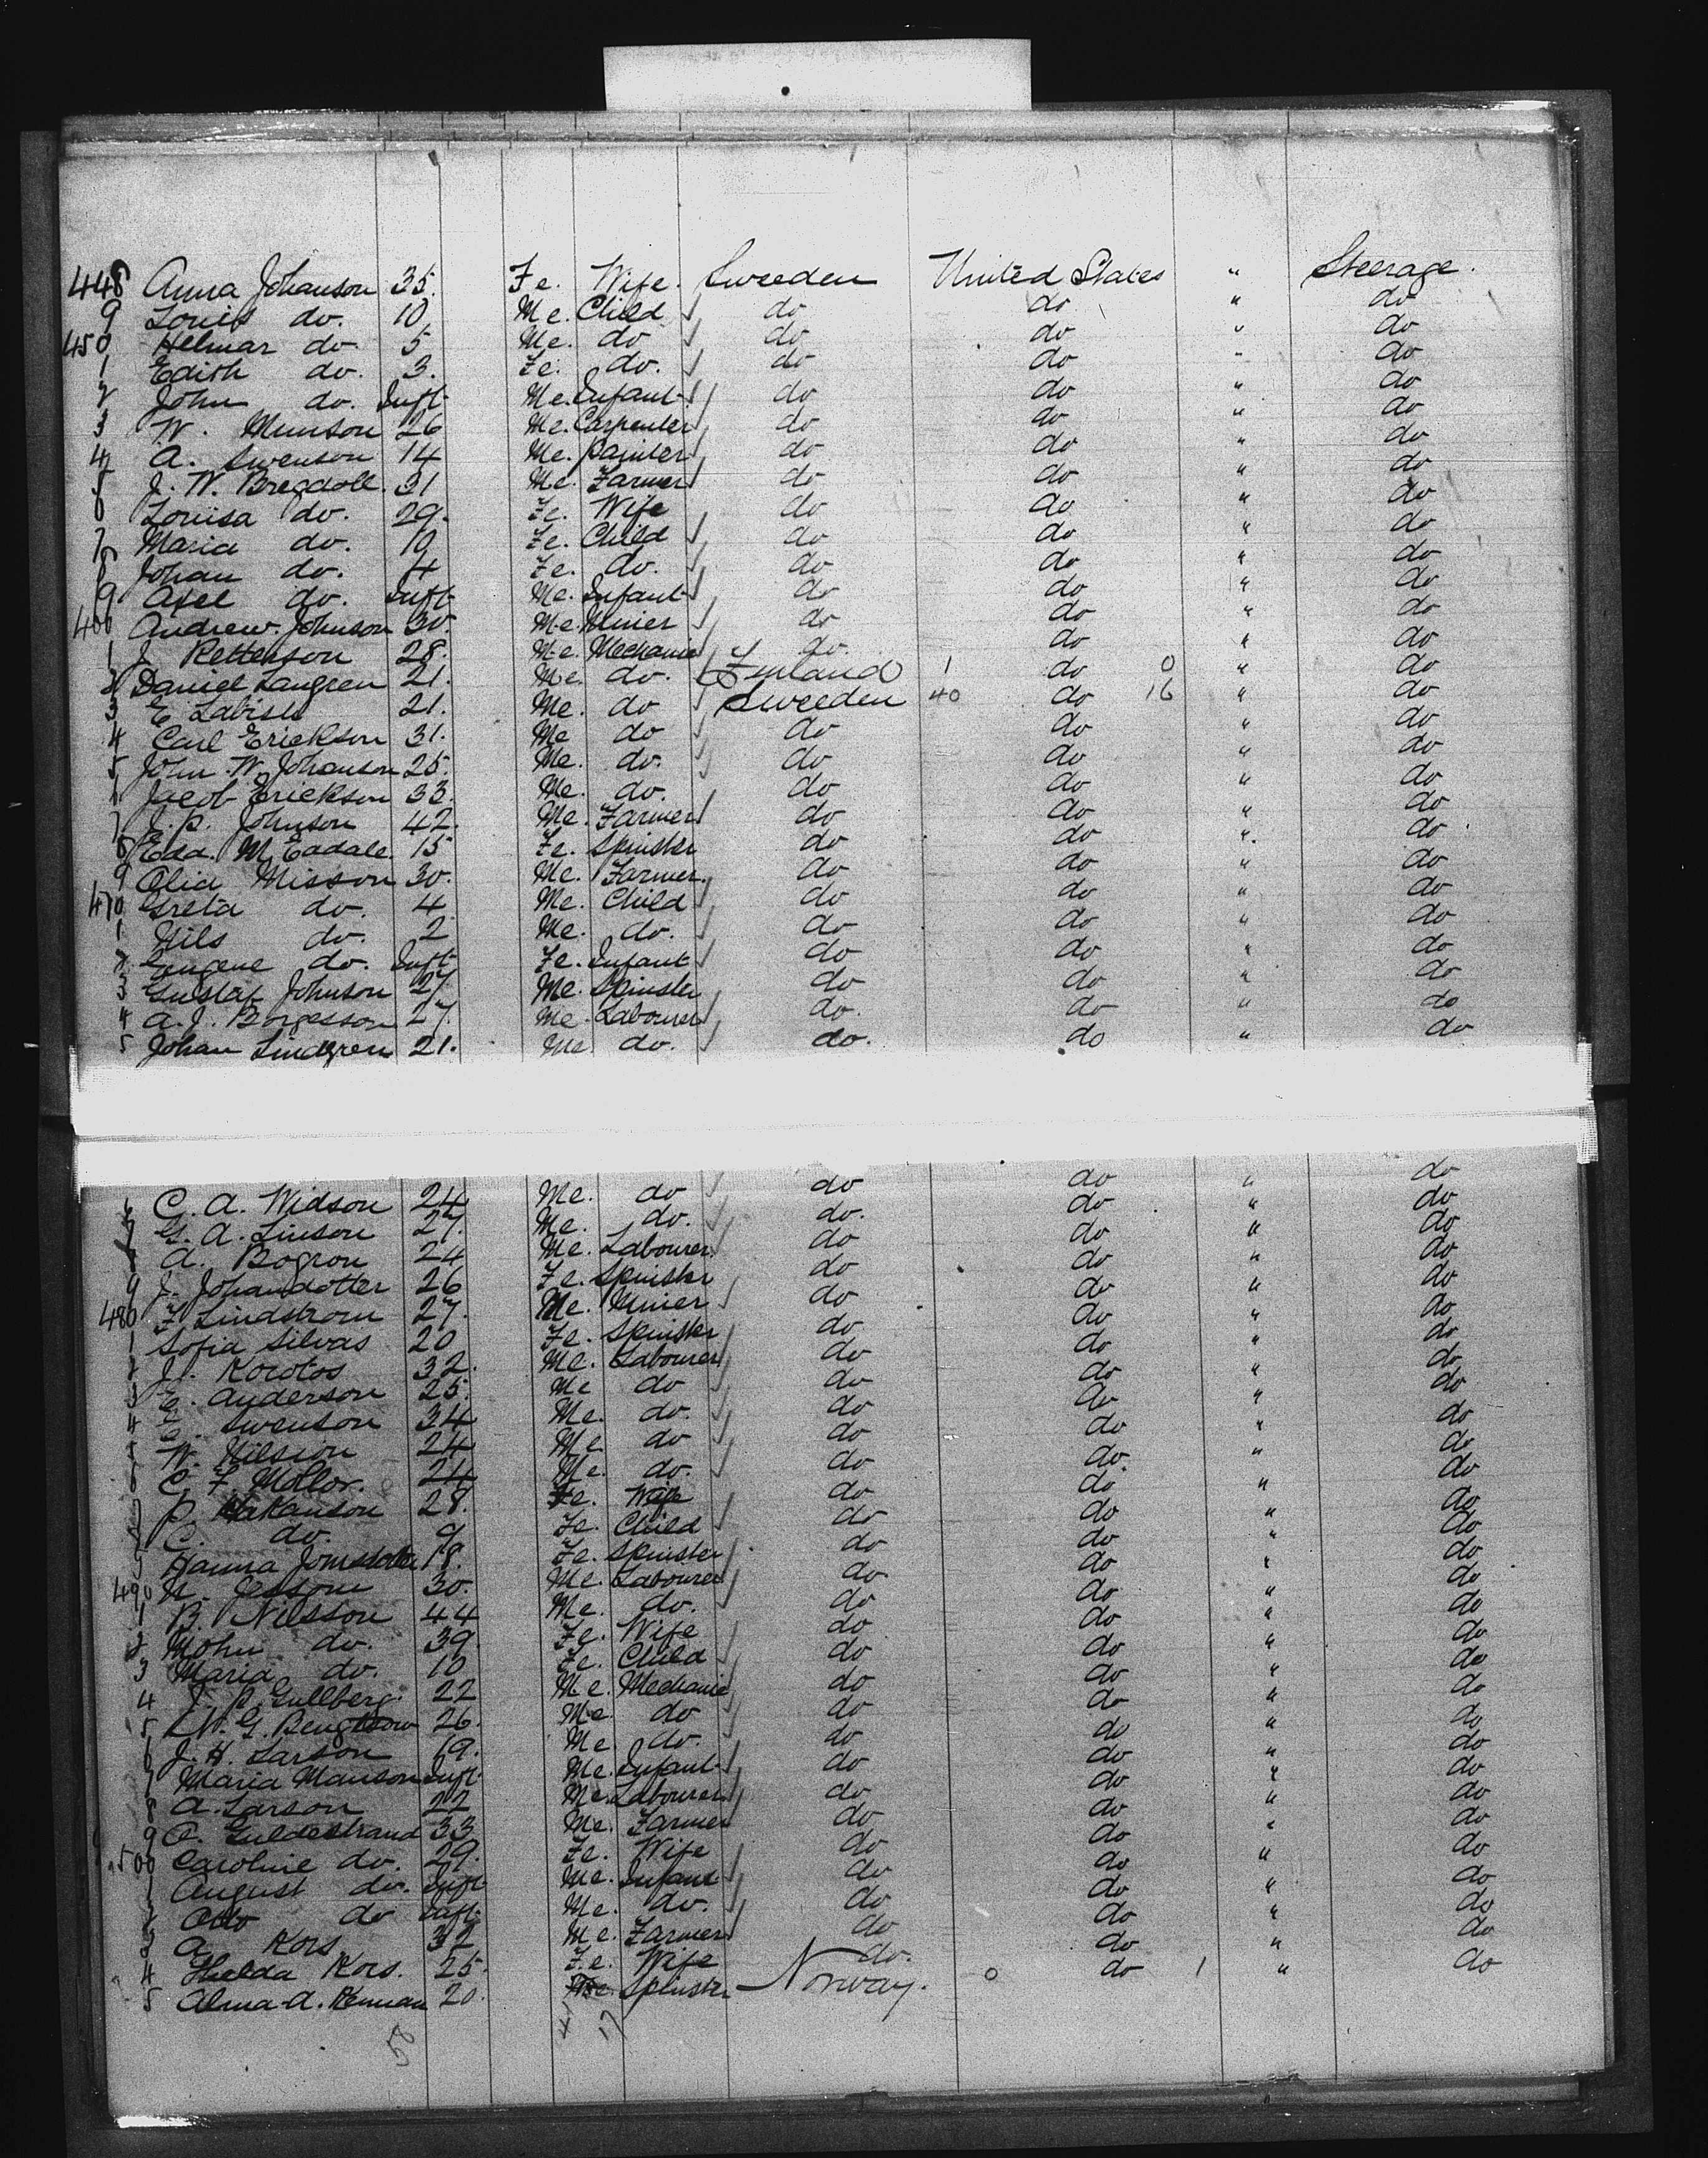 448 Anna Johanson 35. Fe. Wife. Sweeden United States " Steerage.
9 Louis do. 10 Me. Child do do " do
450 Helmar do. 5 Me. do do do " do
1 Edith do. 3. Fe. do. do do " do
2 John do. Inft Me. Infant do do " do
3 W. Munson 26 Me. Carpenter do do " do
4 A. Swenson 14 Me. Painter do do " do
5 J. W. Bregdoll. 31 Me. Farmer do do " do
6 Louisa do. 29. Fe. Wife do do " do
7 Maria do. 10 Fe. Child do do " do
8 Johan do. 4 Fe. do. do do " do
9 Axel do. Inft Me. Infant do do " do
460 Andrew Johnson 30. Me. Miner do do " do
1 J. Petterson 28. Me. Mechanic do. do " do
2 Daniel Langren 21. Me. do. Finland 1 do 0 " do
3 E. 21. Me. do Sweeden 40 do 16 " do
4 Carl Erickson 31. Me do do do " do
5 John W. Johanson 25. Me. do. do do " do
6 Jacob Erickson 33. Me. do. do do " do
7 J. P. Johnson 42. Me. Farmer do do " do
8 Edd. M. Eadale. 15 Fe. Spinster do do " do
9 Olia Misson 30. Me. Farmer. do do " do
470 Greta do. 4 Me. Child do do " do
1 Nils do. 2 Me. do. do do " do
2 Eugene do. Inft Fe. Infant do do " do
3 Gustaf Johnson 27 Me. Spinster do do " do
4 A. J. Borgesson 27. Me. Labourer do. do " do
5 Johan Lindgren 21. Me do. do. do " do
6 C. A. Widson 24 Me. do do do " do
7 G. A. Linson 27. Me. do. do. do " do
8 A. Bogron 24 Me. Labourer. do do " do
9 J. Johandotter 26 Fe. Spinster do do " do
480 F. Lindstrom 27. Me. Miner do do " do
1 Sofia Silvas 20 Fe. Spinster do do " do
2 J. Korotos 32. Me. Labourer do do " do
3 E. Anderson 25. Me do do do " do
4 E. Swenson 34 Me. do. do do " do
5 W. Nilsion 24 Me do do do " do
6 C. F. Mollor. 24 Me. do. do do. " do
7 P. Hakanson 28. Fe. Wife do do " do
8 C. do. 9 Fe. Child do do " do
9 Hanna 18. Fe. Spinster do do " do
490 N. 30. Me. Labourer do do " do
1 B. Nilsson 44 Me. do. do do " do
2 Mohn do. 39. Fe. Wife do do " do
3 Maria do. 10 Fe. Child do do " do
4 J. P. Gullberg. 22 Me. Mechanic do do " do
5 W. G. Bengtson 26. Me. do do do " do
6 J. H. Larson 19. Me do. do do " do
7 Maria Manson Inft Me. Infant do do " do
8 A. Larson 22 Me. Labourer do do " do
9 O. Guldestrand 33 Me. Farmer do do " do
500 Caroline do. 29. Fe. Wife do do " do
1 August do. Inft Me. Infant do do " do
2 Otto do Inft Me. do. do do " do
3 A. Kors 32 Me. Farmer do do " do
4 Hulda Kors. 25. Fe. Wife do. do " do
5 Alma A. Kennan 20. Spinster Norway. 0 do 1 " do
58 41 17